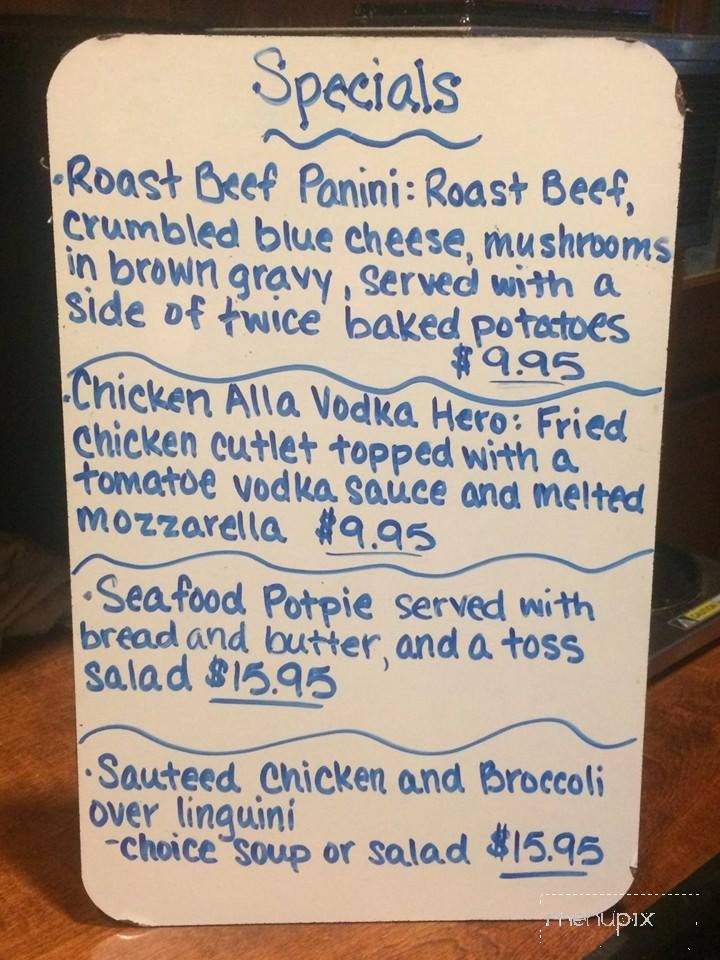 Specials
·Roast Beef Panini: Roast Beef,
crumbled blue cheese, mushrooms
in brown gravy, served with a
side of twice baked potatoes
$9.95
·Chicken Alla Vodka Hero: Fried
chicken cutlet topped with a
tomatoe vodka sauce and melted
mozzarella $9.95
·Seafood Potpie served with
bread and butter, and a toss
salad $15.95
·Sauteed Chicken and Broccoli
over linguini
-choice soup or salad $15.95
menupix